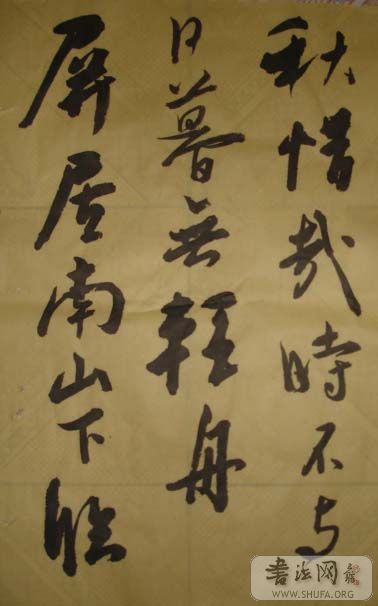 秋惜哉時不与
日暮無輕舟
屏居南山下臨
書法网
WWW.SHUFA.ORG